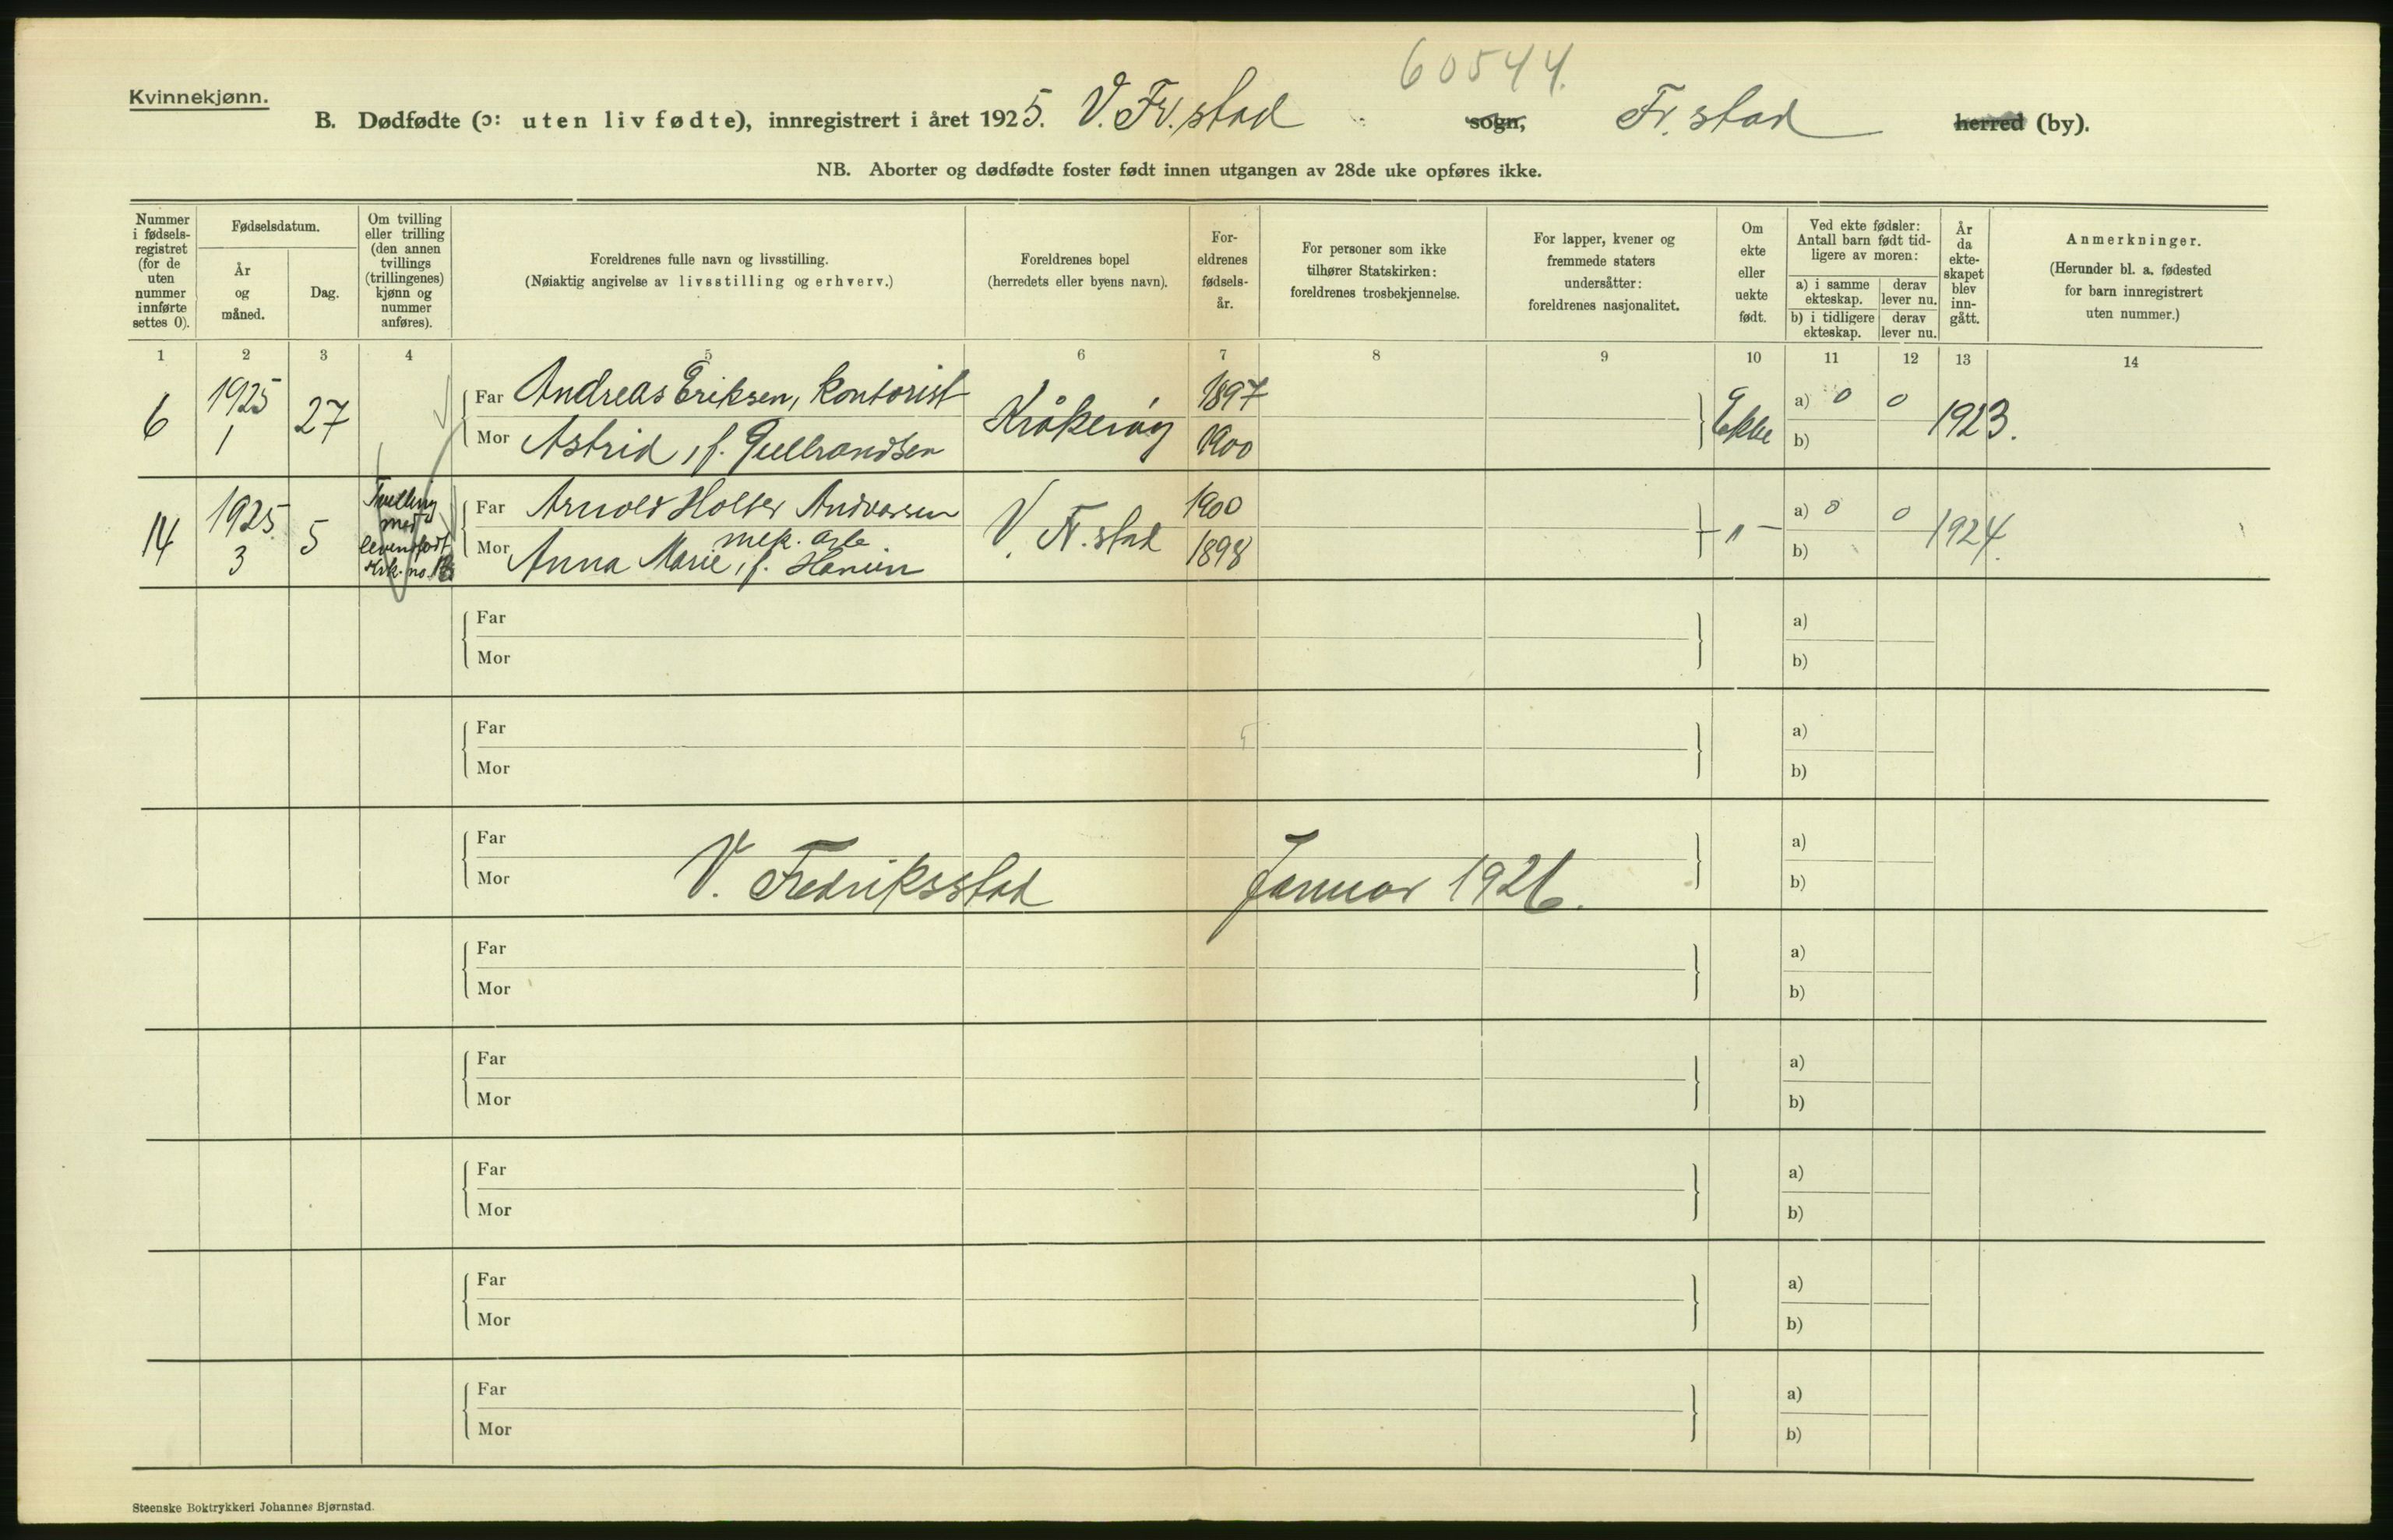 60544.
Kvinnekjønn.
B. Dødfødte (ɔ: uten liv fødte), innregistrert i året 1925. V. Fr.stad sogn, Fr.stad herred (by).
NB. Aborter og dødfødte foster født innen utgangen av 28de uke opføres ikke.
Nummer i fødsels-registret (for de uten nummer innførte settes 0).
Fødselsdatum.
År og måned.
Dag.
Om tvilling eller trilling (den annen tvillings (trillingenes) kjønn og nummer anføres).
Foreldrenes fulle navn og livsstilling.
(Nøiaktig angivelse av livsstilling og erhverv.)
Foreldrenes bopel
(herredets eller byens navn).
For-eldrenes fødsels-år.
For personer som ikke tilhører Statskirken: foreldrenes trosbekjennelse.
For lapper, kvener og fremmede staters undersåtter: foreldrenes nasjonalitet.
Om ekte eller uekte født.
Ved ekte fødsler: Antall barn født tid-ligere av moren:
a) i samme ekteskap.
derav lever nu.
b) i tidligere ekteskap.
derav lever nu.
År da ekte-skapet blev inn-gått.
Anmerkninger.
(Herunder bl. a. fødested for barn innregistrert uten nummer.)
1 2 3 4 5 6 7 8 9 10 11 12 13 14
6 1925 1 27 Far Andreas Eriksen, kontorist Kråkerøy 1897 Ekte a) 0 0 1923.
Mor Astrid, f. Gulbrandsen 1900 b)
14 1925. 3 5 Tvilling med levendefødt Far Arnold Holter Andreassen V. Fr.stad 1900 -"- a) 0 0 1924.
mek. arb.
Mor Anna Marie, f. 1898 b)
Far a)
Mor b)
Far a)
Mor b)
Far a)
V. Fredriksstad Januar 1926.
Mor b)
Far a)
Mor b)
Far a)
Mor b)
Far a)
Mor b)
Far a)
Mor b)
Far a)
Mor b)
Steenske Boktrykkeri Johannes Bjørnstad.